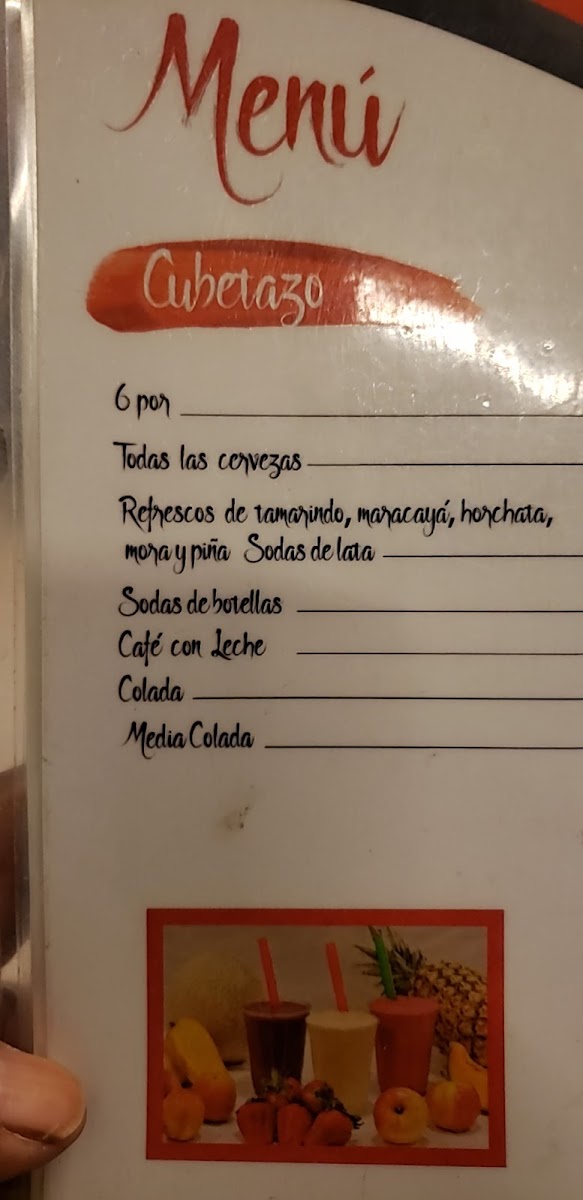 Menú
Cubetazo
6 por
Todas las cervezas
Refrescos de tamarindo, maracayá, horchata,
mora y piña Sodas de lata
Sodas de botellas
Café con Leche
Colada
Media Colada